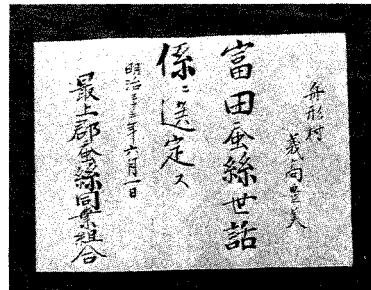 舟形村
義高豊美
富田蚕絲世話
係ニ選定ス
明治三十三年六月一日
最上郡蚕絲同業組合